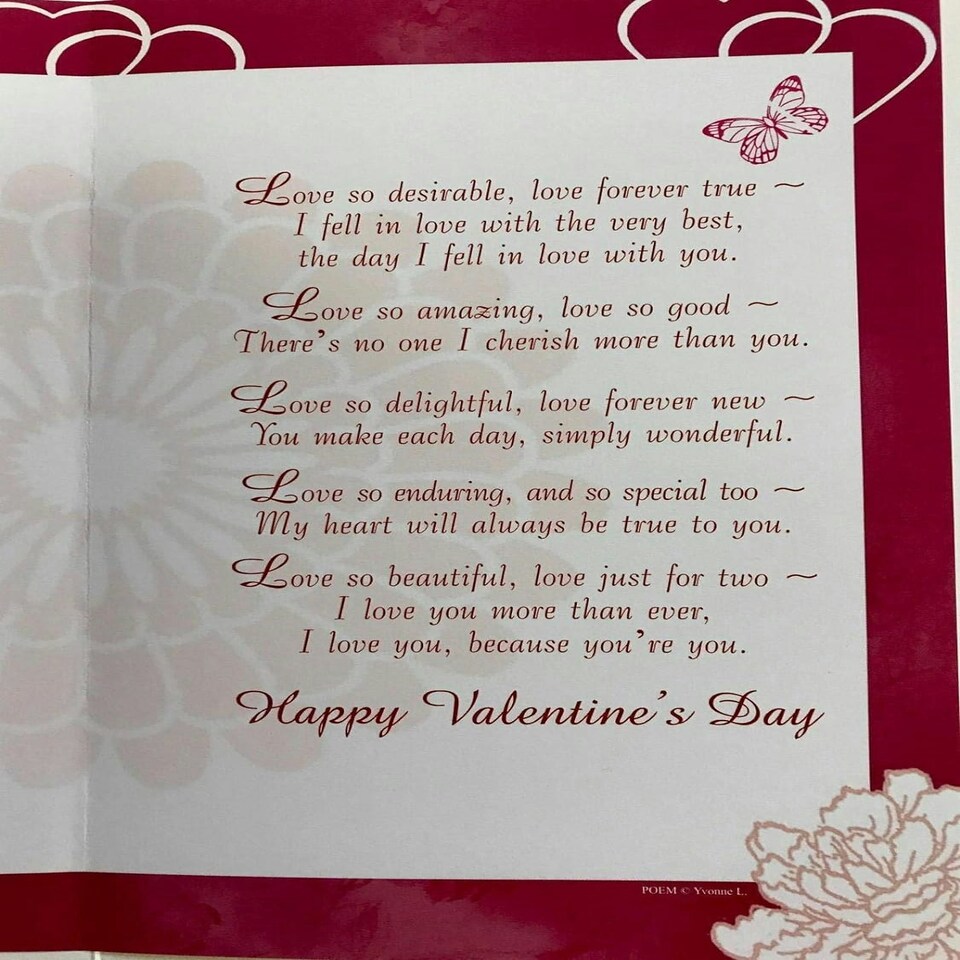 Love so desirable, love forever true ~
I fell in love with the very best,
the day I fell in love with you.
Love so amazing, love so good ~
There's no one I cherish more than you.
Love so delightful, love forever new ~
You make each day, simply wonderful.
Love so enduring, and so special too ~
My heart will always be true to you.
Love so beautiful, love just for two ~
I love you more than ever,
I love you, because you're you.
Happy Valentine's Day
POEM © Yvonne L.